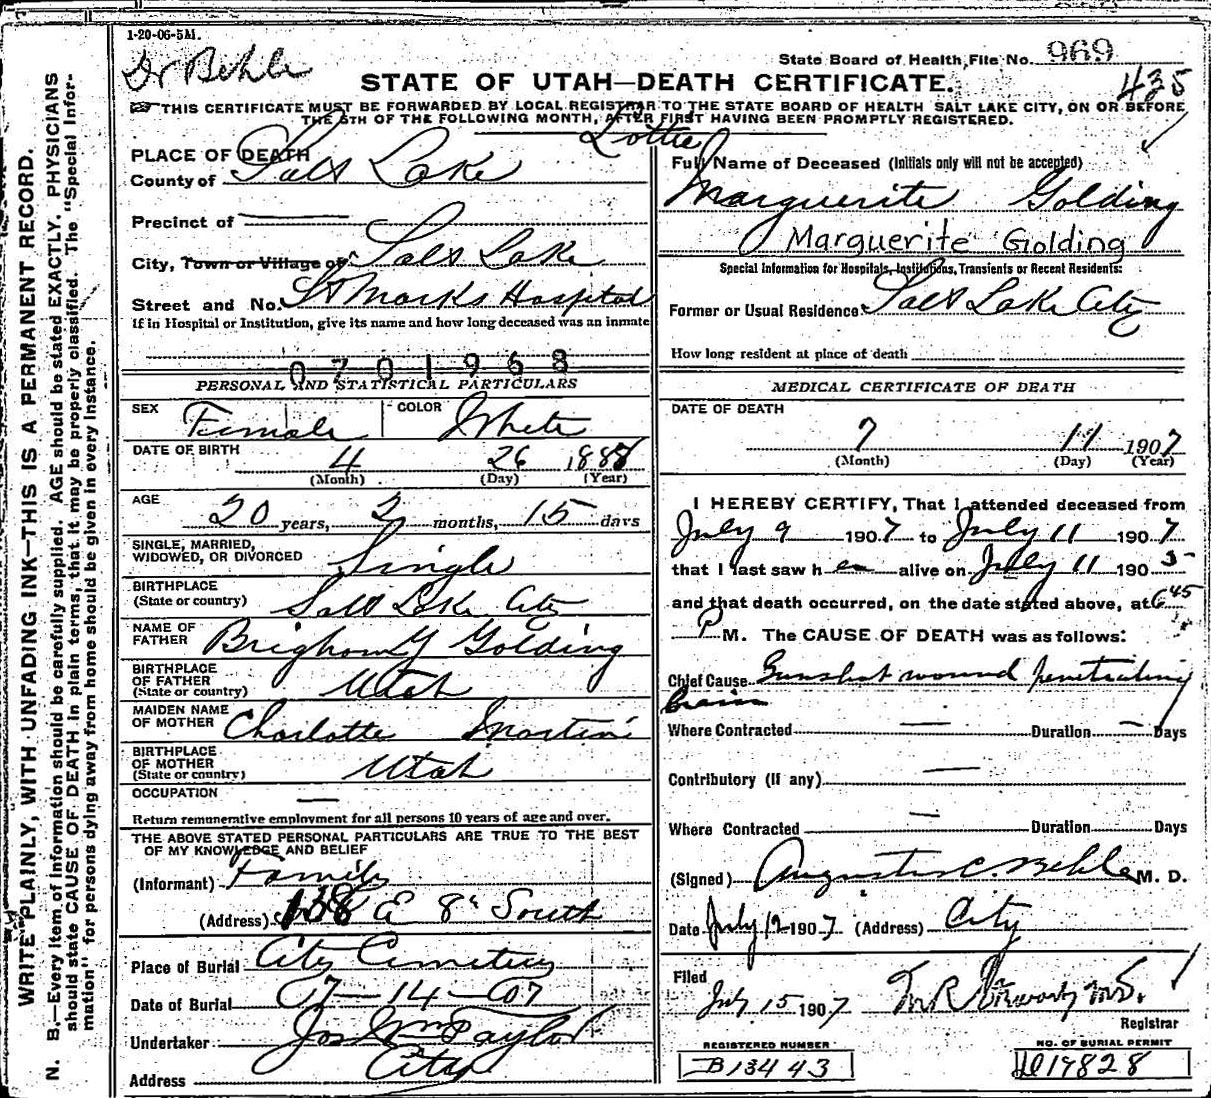 1-20-06-5M.
Dr Behle
State Board of Health, File No. 969
435
STATE OF UTAH—DEATH CERTIFICATE.
THIS CERTIFICATE MUST BE FORWARDED BY LOCAL REGISTRAR TO THE STATE BOARD OF HEALTH SALT LAKE CITY, ON OR BEFORE
THE 5TH OF THE FOLLOWING MONTH, AFTER FIRST HAVING BEEN PROMPTLY REGISTERED.
WRITE PLAINLY, WITH UNFADING INK—THIS IS A PERMANENT RECORD.
N. B.—Every item of information should be carefully supplied. AGE should be stated EXACTLY. PHYSICIANS
should state CAUSE OF DEATH in plain terms, that it may be properly classified. The "Special Infor-
mation" for persons dying away from home should be given in every instance.
PLACE OF DEATH
County of Salt Lake
Precinct of
City, Town or Village of Salt Lake
Street and No. St Marks Hospital
If in Hospital or Institution, give its name and how long deceased was an inmate
0701968
PERSONAL AND STATISTICAL PARTICULARS
SEX Female COLOR White
DATE OF BIRTH 4 26 1888
(Month) (Day) (Year)
AGE 20 years, 2 months, 15 days
SINGLE, MARRIED,
WIDOWED, OR DIVORCED Single
BIRTHPLACE
(State or country) Salt Lake City
NAME OF
FATHER Brigham Y Golding
BIRTHPLACE
OF FATHER
(State or country) Utah
MAIDEN NAME
OF MOTHER Charlotte Martini
BIRTHPLACE
OF MOTHER
(State or country) Utah
OCCUPATION —
Return remunerative employment for all persons 10 years of age and over.
THE ABOVE STATED PERSONAL PARTICULARS ARE TRUE TO THE BEST
OF MY KNOWLEDGE AND BELIEF
(Informant) Family
(Address) 138 E 8th South
Place of Burial City Cemetery
Date of Burial 7-14-07
Undertaker Jos Wm Taylor
Address City
Lottie
Full Name of Deceased (Initials only will not be accepted)
Marguerite Golding
Marguerite Golding
Special Information for Hospitals, Institutions, Transients or Recent Residents:
Former or Usual Residence Salt Lake City
How long resident at place of death
MEDICAL CERTIFICATE OF DEATH
DATE OF DEATH
7 11 1907
(Month) (Day) (Year)
I HEREBY CERTIFY, That I attended deceased from
July 9 1907 to July 11 1907
that I last saw her alive on July 11 1905
and that death occurred, on the date stated above, at 6 45
P M. The CAUSE OF DEATH was as follows:
Chief Cause Gunshot wound penetrating
brain
Where Contracted — Duration — Days
Contributory (If any) —
Where Contracted — Duration Days
(Signed) Augustus C. Behle M. D.
Date July 12 1907 (Address) City
Filed
July 15 1907 M.R. M.D.
Registrar
REGISTERED NUMBER
B13443
NO. OF BURIAL PERMIT
19828